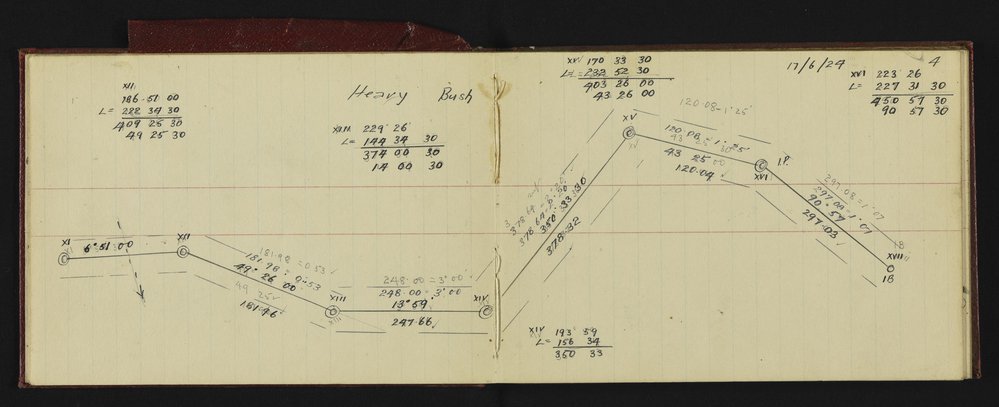 XII
186-51 00
L = 222 34 30
409 25 30
49 25 30
Heavy Bush
XIII 229° 26'
L = 144 34 30
374 00 30
14 00 30
XV 170 33 30
L = 232 52 30
403 26 00
43 26 00
17/6/24
4
XVI 223° 26
L = 227 31 30
450 57 30
90 57 30
XI
6° 51 00
XII
181.98 = 0.53 ✓
181.98 = 0°53
49° 26 00
49 25 ✓
181.96
XIII
XIII
248.00 = 3° 00'
248.00 = 3° 00
13° 59'
247.66 ✓
XIV
378.64
350° 33' 30
378.32
XV
120.08 - 1° 25'
120.08 = 1° 25
43 25 30
43 25 00
120.04 ✓
I.P.
XVI
297.08 = 1° 07
297.09 = 1° 07
90° 57
297.03 ✓
IB
XVII
IB
XIV 193° 59
L = 156 34
350 33